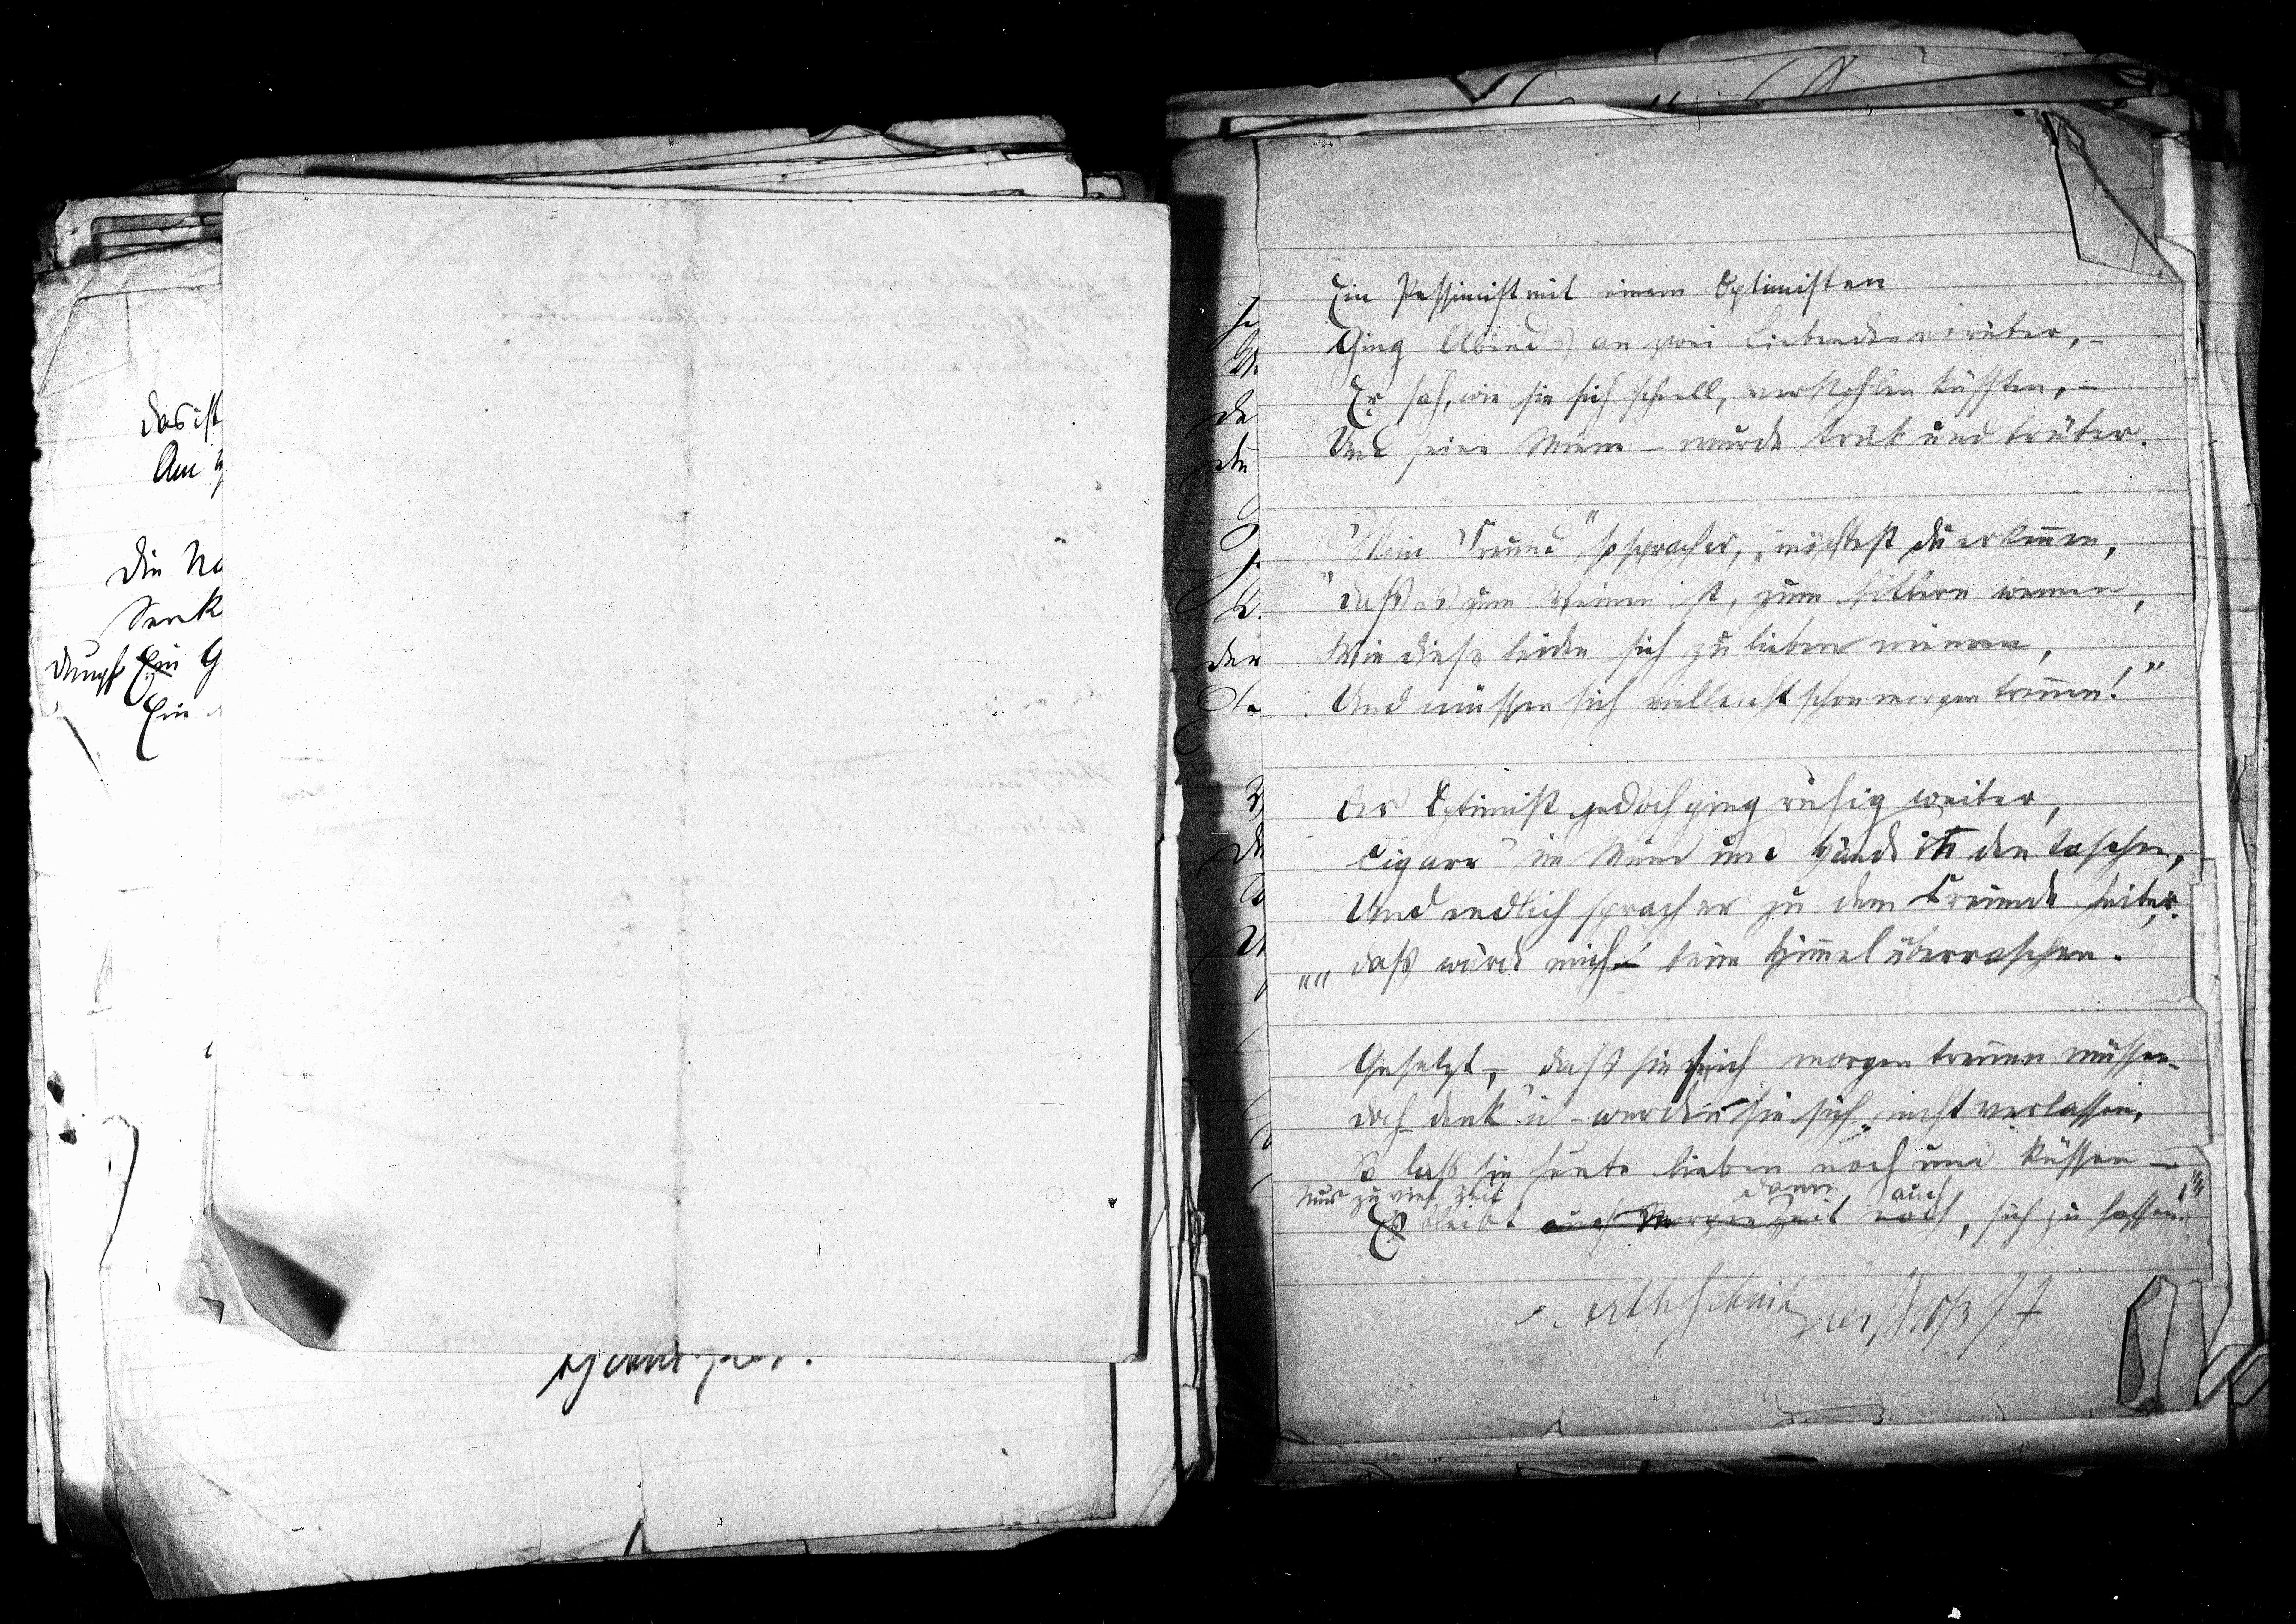 das ist
Am
die Na
Senk
dumpf Ein G
Ein
Ein Pessimist mit einem Optimisten
Ging Abends an zwei Liebenden vorüber, –
Er sah, wie sie sich schnell, verstohlen küssten, –
Und seine Miene – wurde trüb und trüber.
"Mein Freund", so sprach er, "möchtest du erkennen,
"daß es zum Weinen ist, zum bittern weinen,
Wie diese beiden sich zu lieben meinen,
Und müssen sich vielleicht schon morgen trennen!"
der Optimist jedoch ging ruhig weiter,
Cigarr' im Mund und Hände in den Taschen,
Und endlich sprach er zu dem Freunde heiter:
""daß würde mich – beim Himmel überraschen.
Gesetzt –, daß sie sich morgen trennen müssen –
doch – denk' ich – werden sie sich nicht verlassen,
So laß sie heute lieben noch und küssen –
Nur zu viel Zeit dann auch
Es bleibt auch Morgen Zeit noch, sich zu hassen.""
Arth Schnitzler 18/3 77